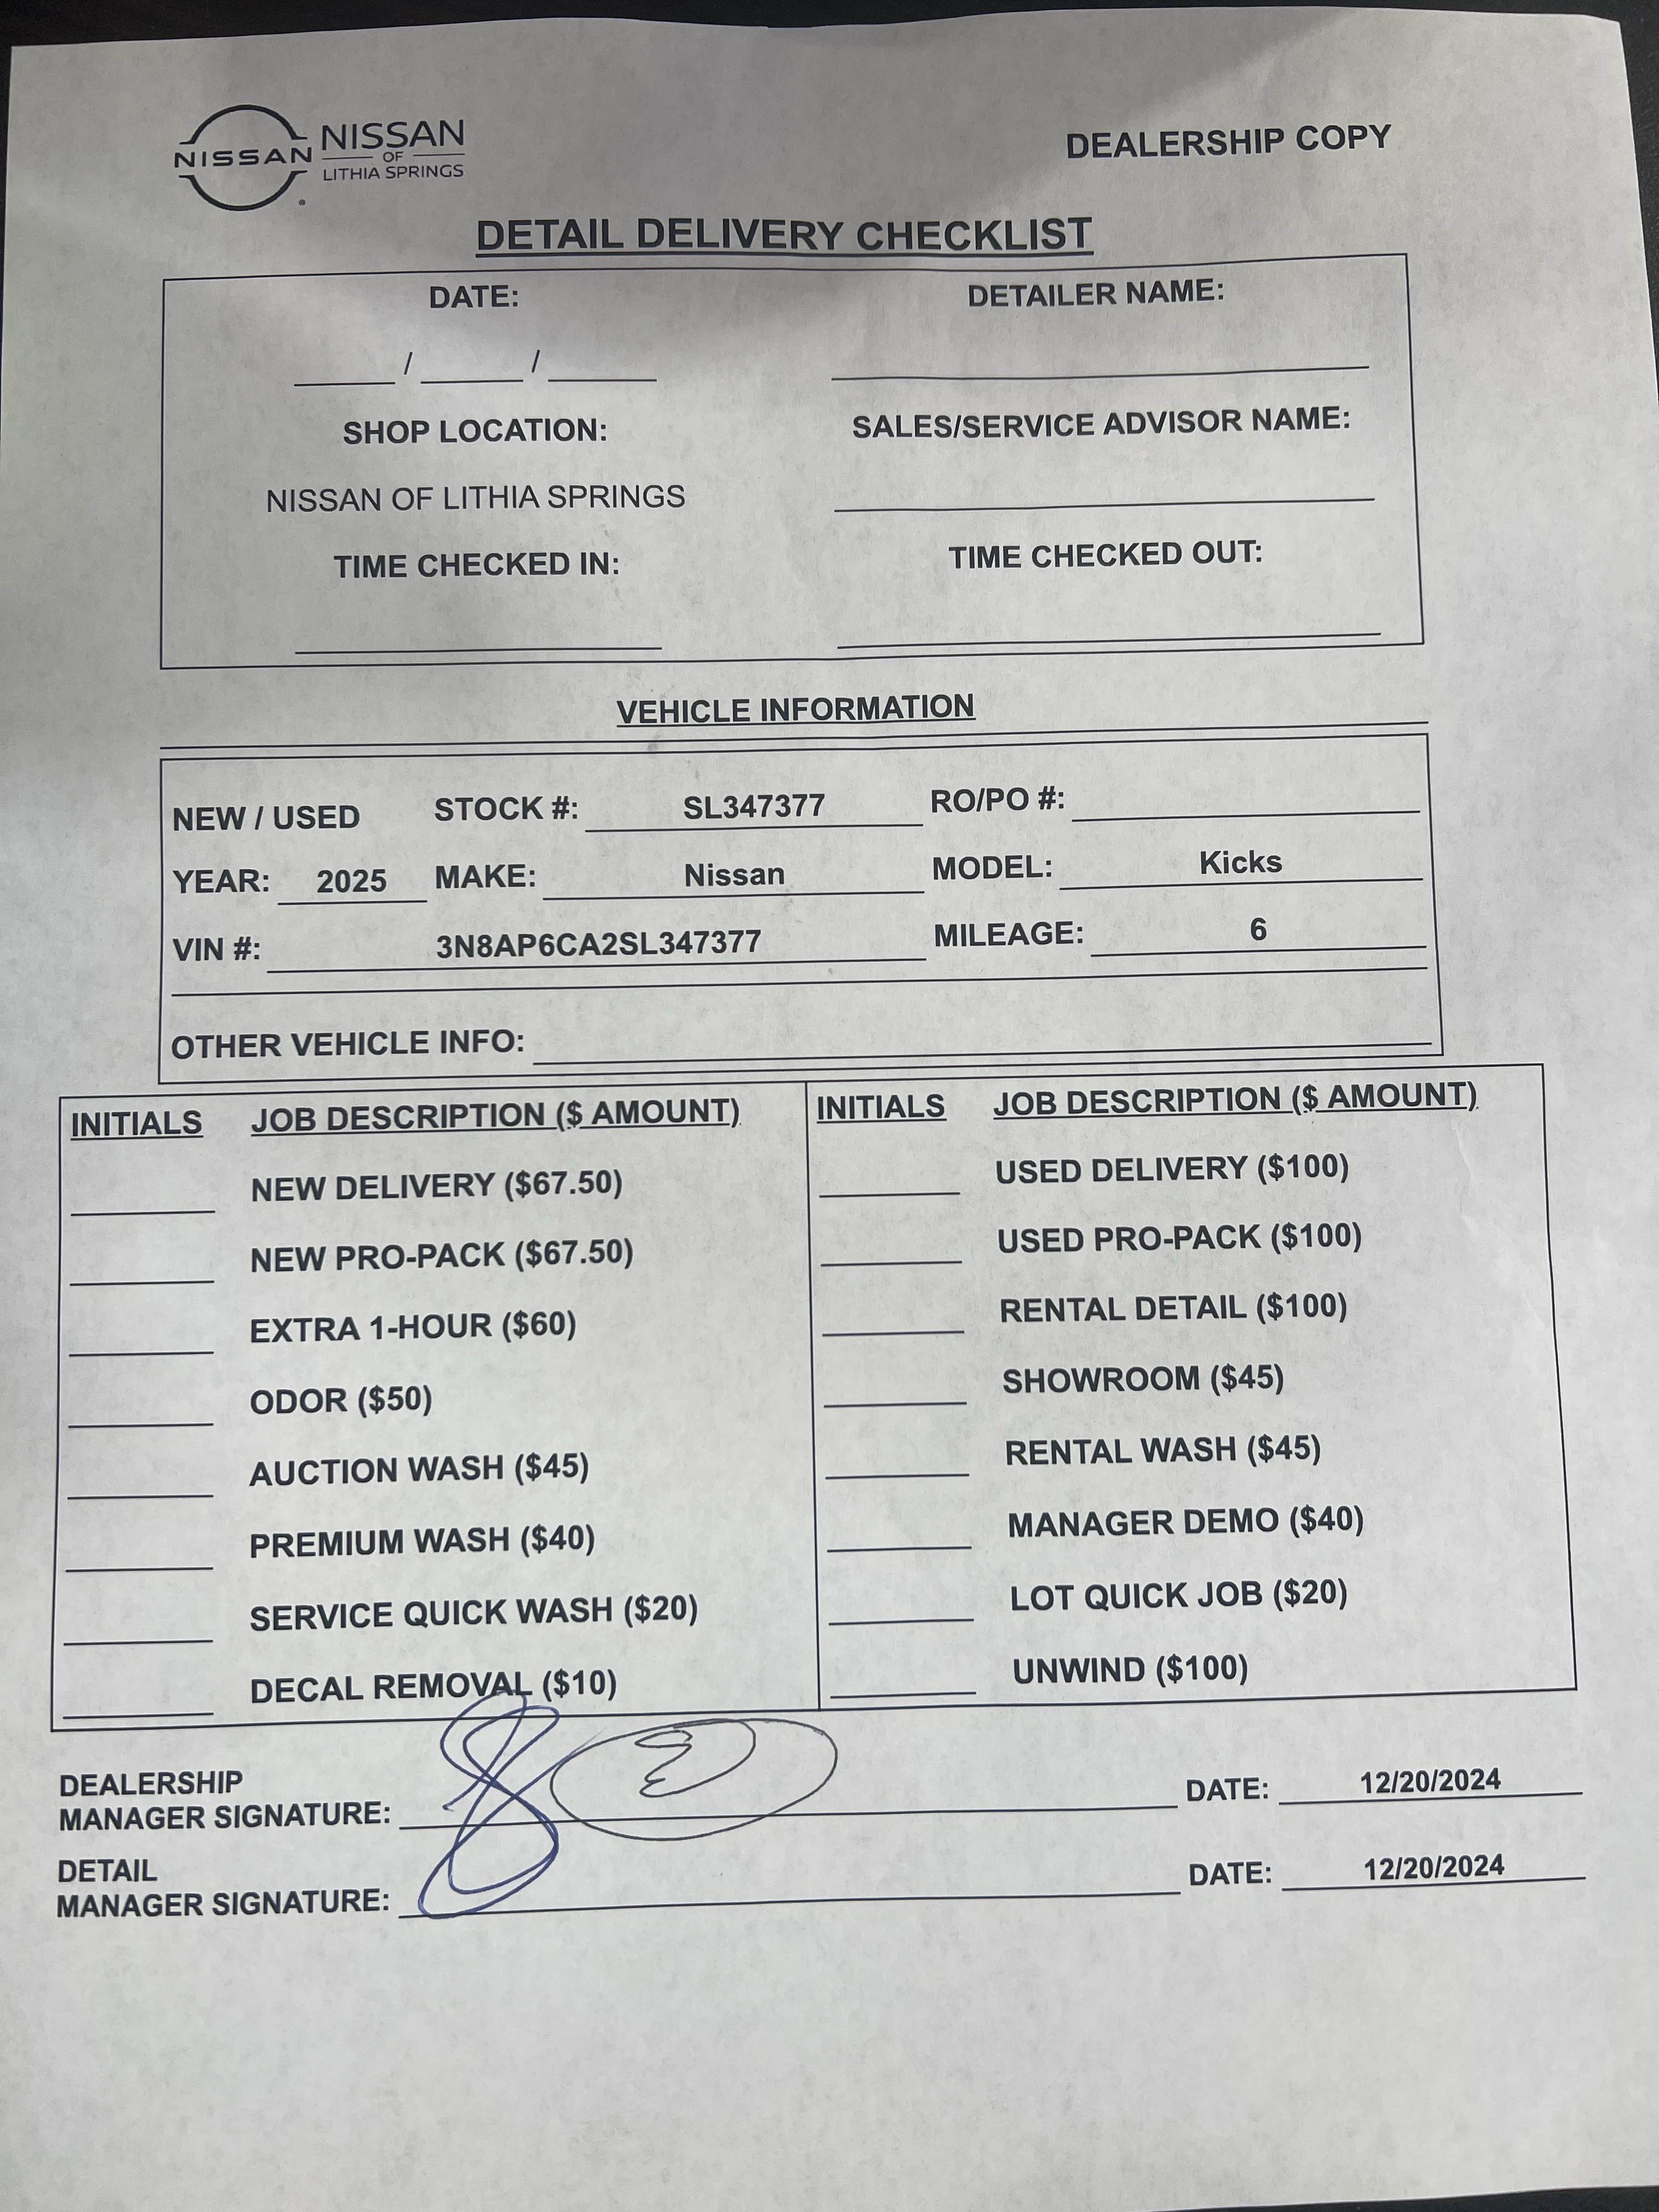 NISSAN
NISSAN
OF
LITHIA SPRINGS
DEALERSHIP COPY
DETAIL DELIVERY CHECKLIST
DATE:
DETAILER NAME:
/ /
SHOP LOCATION:
SALES/SERVICE ADVISOR NAME:
NISSAN OF LITHIA SPRINGS
TIME CHECKED IN:
TIME CHECKED OUT:
VEHICLE INFORMATION
NEW / USED STOCK #: SL347377 RO/PO #:
YEAR: 2025 MAKE: Nissan MODEL: Kicks
VIN #: 3N8AP6CA2SL347377 MILEAGE: 6
OTHER VEHICLE INFO:
INITIALS JOB DESCRIPTION ($ AMOUNT)
NEW DELIVERY ($67.50)
NEW PRO-PACK ($67.50)
EXTRA 1-HOUR ($60)
ODOR ($50)
AUCTION WASH ($45)
PREMIUM WASH ($40)
SERVICE QUICK WASH ($20)
DECAL REMOVAL ($10)
INITIALS JOB DESCRIPTION ($ AMOUNT)
USED DELIVERY ($100)
USED PRO-PACK ($100)
RENTAL DETAIL ($100)
SHOWROOM ($45)
RENTAL WASH ($45)
MANAGER DEMO ($40)
LOT QUICK JOB ($20)
UNWIND ($100)
DEALERSHIP
MANAGER SIGNATURE: DATE: 12/20/2024
DETAIL
MANAGER SIGNATURE: DATE: 12/20/2024